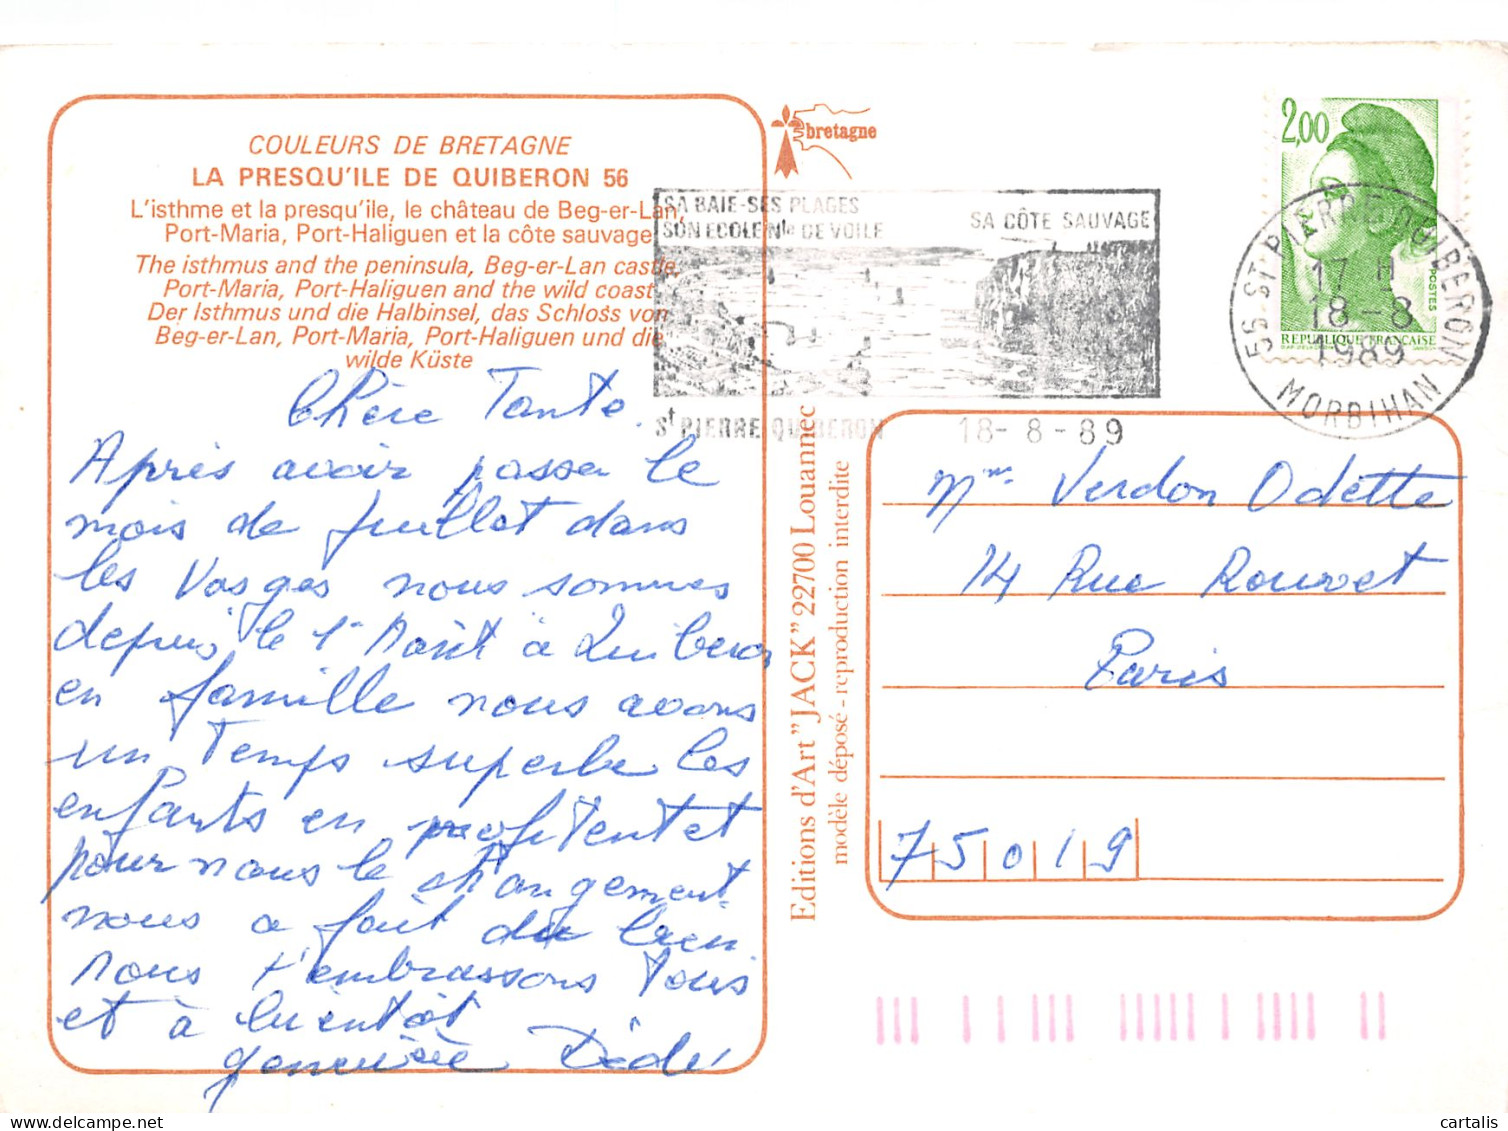 COULEURS DE BRETAGNE
LA PRESQU'ILE DE QUIBERON 56
L'isthme et la presqu'ile, le château de Beg-er-Lan,
Port-Maria, Port-Haliguen et la côte sauvage
The isthmus and the peninsula, Beg-er-Lan castle,
Port-Maria, Port-Haliguen and the wild coast
Der Isthmus und die Halbinsel, das Schloss von
Beg-er-Lan, Port-Maria, Port-Haliguen und die
wilde Küste
Chère Tante.
Après avoir passer le
mois de Juillet dans
les Vosges nous sommes
depuis le 1er Août à Quiberon
en famille nous avons
un Temps superbe les
enfants en profitent et
pour nous le changement
nous a fait du bien
Nous t'embrassons Tous
et à bientôt
Geneviève Dédé
bretagne
SA BAIE-SES PLAGES
SON ECOLE Nle DE VOILE
SA CÔTE SAUVAGE
St PIERRE QUIBERON 18-8-89
2,00
POSTES
REPUBLIQUE FRANCAISE
56 ST PIERRE QUIBERON
17 H
18-8
1989
MORBIHAN
Editions d'Art "JACK" 22700 Louannec
modèle déposé - reproduction interdite
Mme. Verdon Odette
14 Rue Rouvet
Paris
75019
cartalis
delcampe.net